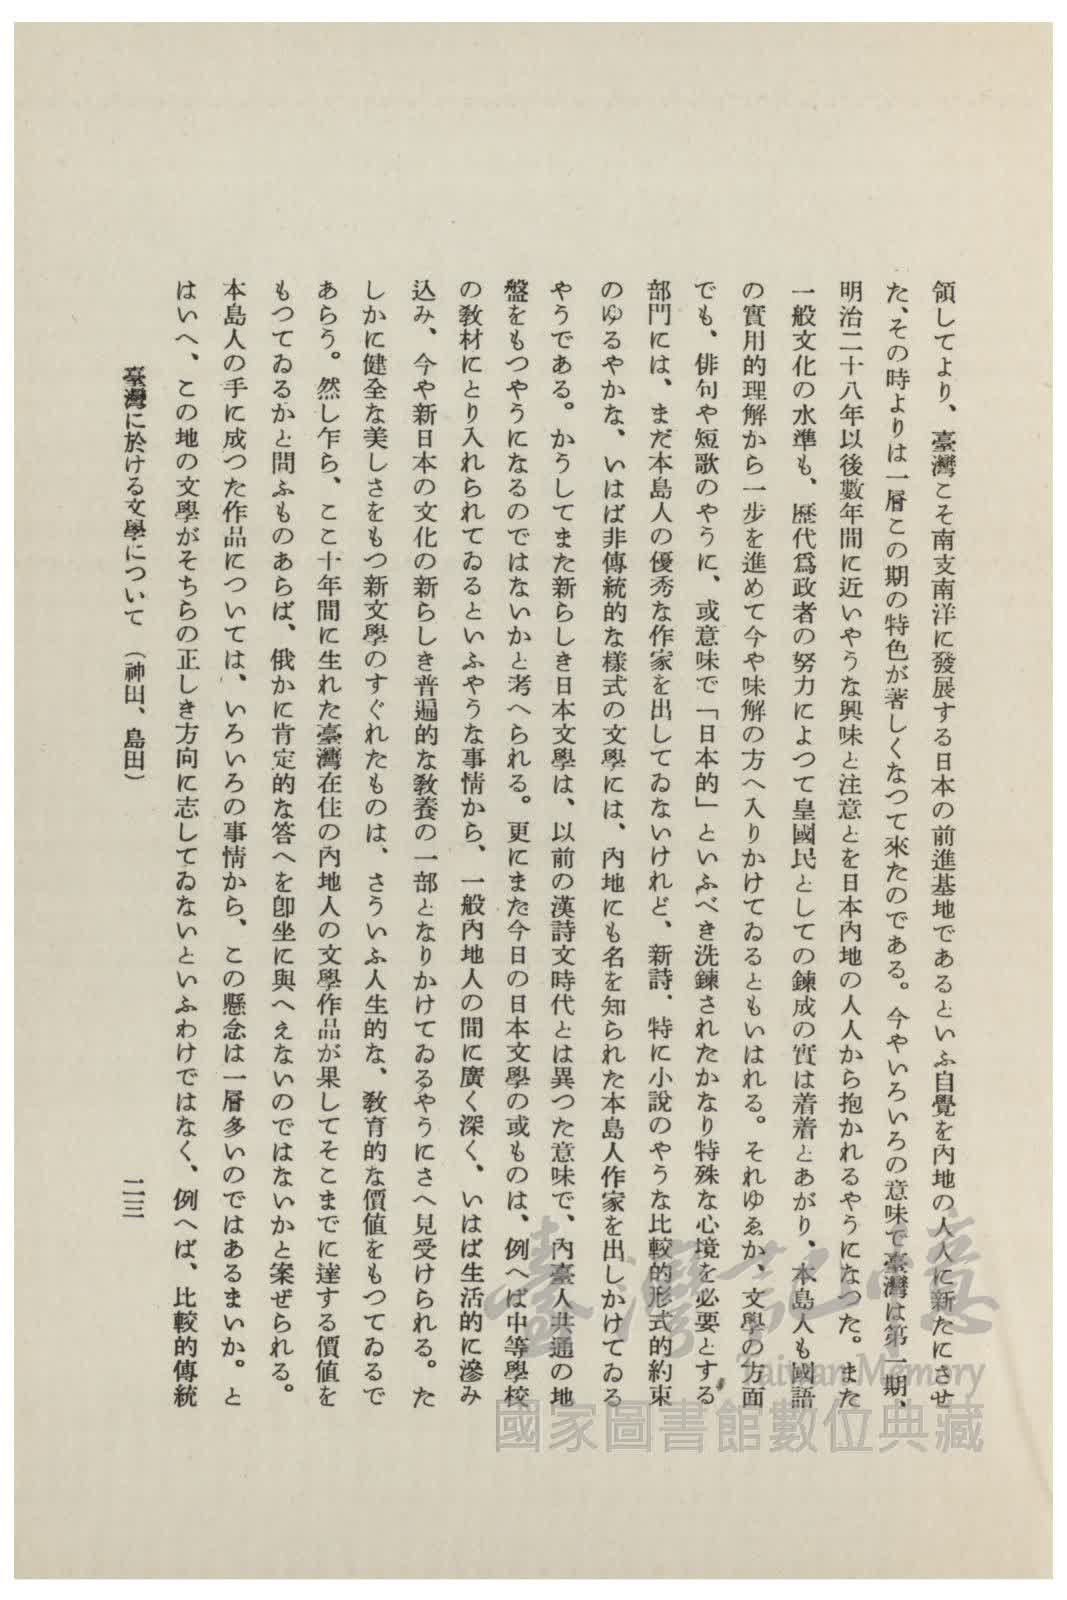 領してより、臺灣こそ南支南洋に發展する日本の前進基地であるといふ自覺を內地の人人に新たにさせ
た、その時よりは一層この期の特色が著しくなつて來たのである。今やいろいろの意味で臺灣は第一期、
明治二十八年以後數年間に近いやうな興味と注意とを日本內地の人人から抱かれるやうになつた。また
一般文化の水準も、歷代爲政者の努力によつて皇國民としての鍊成の實は着着とあがり、本島人も國語
の實用的理解から一步を進めて今や味解の方へ入りかけてゐるともいはれる。それゆゑか、文學の方面
でも、俳句や短歌のやうに、或意味で「日本的」といふべき洗鍊されたかなり特殊な心境を必要とする
部門には、まだ本島人の優秀な作家を出してゐないけれど、新詩、特に小說のやうな比較的形式的約束
のゆるやかな、いはば非傳統的な樣式の文學には、內地にも名を知られた本島人作家を出しかけてゐる
やうである。かうしてまた新らしき日本文學は、以前の漢詩文時代とは異つた意味で、內臺人共通の地
盤をもつやうになるのではないかと考へられる。更にまた今日の日本文學の或ものは、例へば中等學校
の敎材にとり入れられてゐるといふやうな事情から、一般內地人の間に廣く深く、いはば生活的に滲み
込み、今や新日本の文化の新らしき普遍的な敎養の一部となりかけてゐるやうにさへ見受けられる。た
しかに健全な美しさをもつ新文學のすぐれたものは、さういふ人生的な、敎育的な價値をもつてゐるで
あらう。然し乍ら、ここ十年間に生れた臺灣在住の內地人の文學作品が果してそこまでに達する價値を
もつてゐるかと問ふものあらば、俄かに肯定的な答へを卽坐に與へえないのではないかと案ぜられる。
本島人の手に成つた作品については、いろいろの事情から、この懸念は一層多いのではあるまいか。と
はいへ、この地の文學がそちらの正しき方向に志してゐないといふわけではなく、例へば、比較的傳統
臺灣に於ける文學について（神田、島田）
二三
臺灣記憶
Taiwan Memory
國家圖書館數位典藏